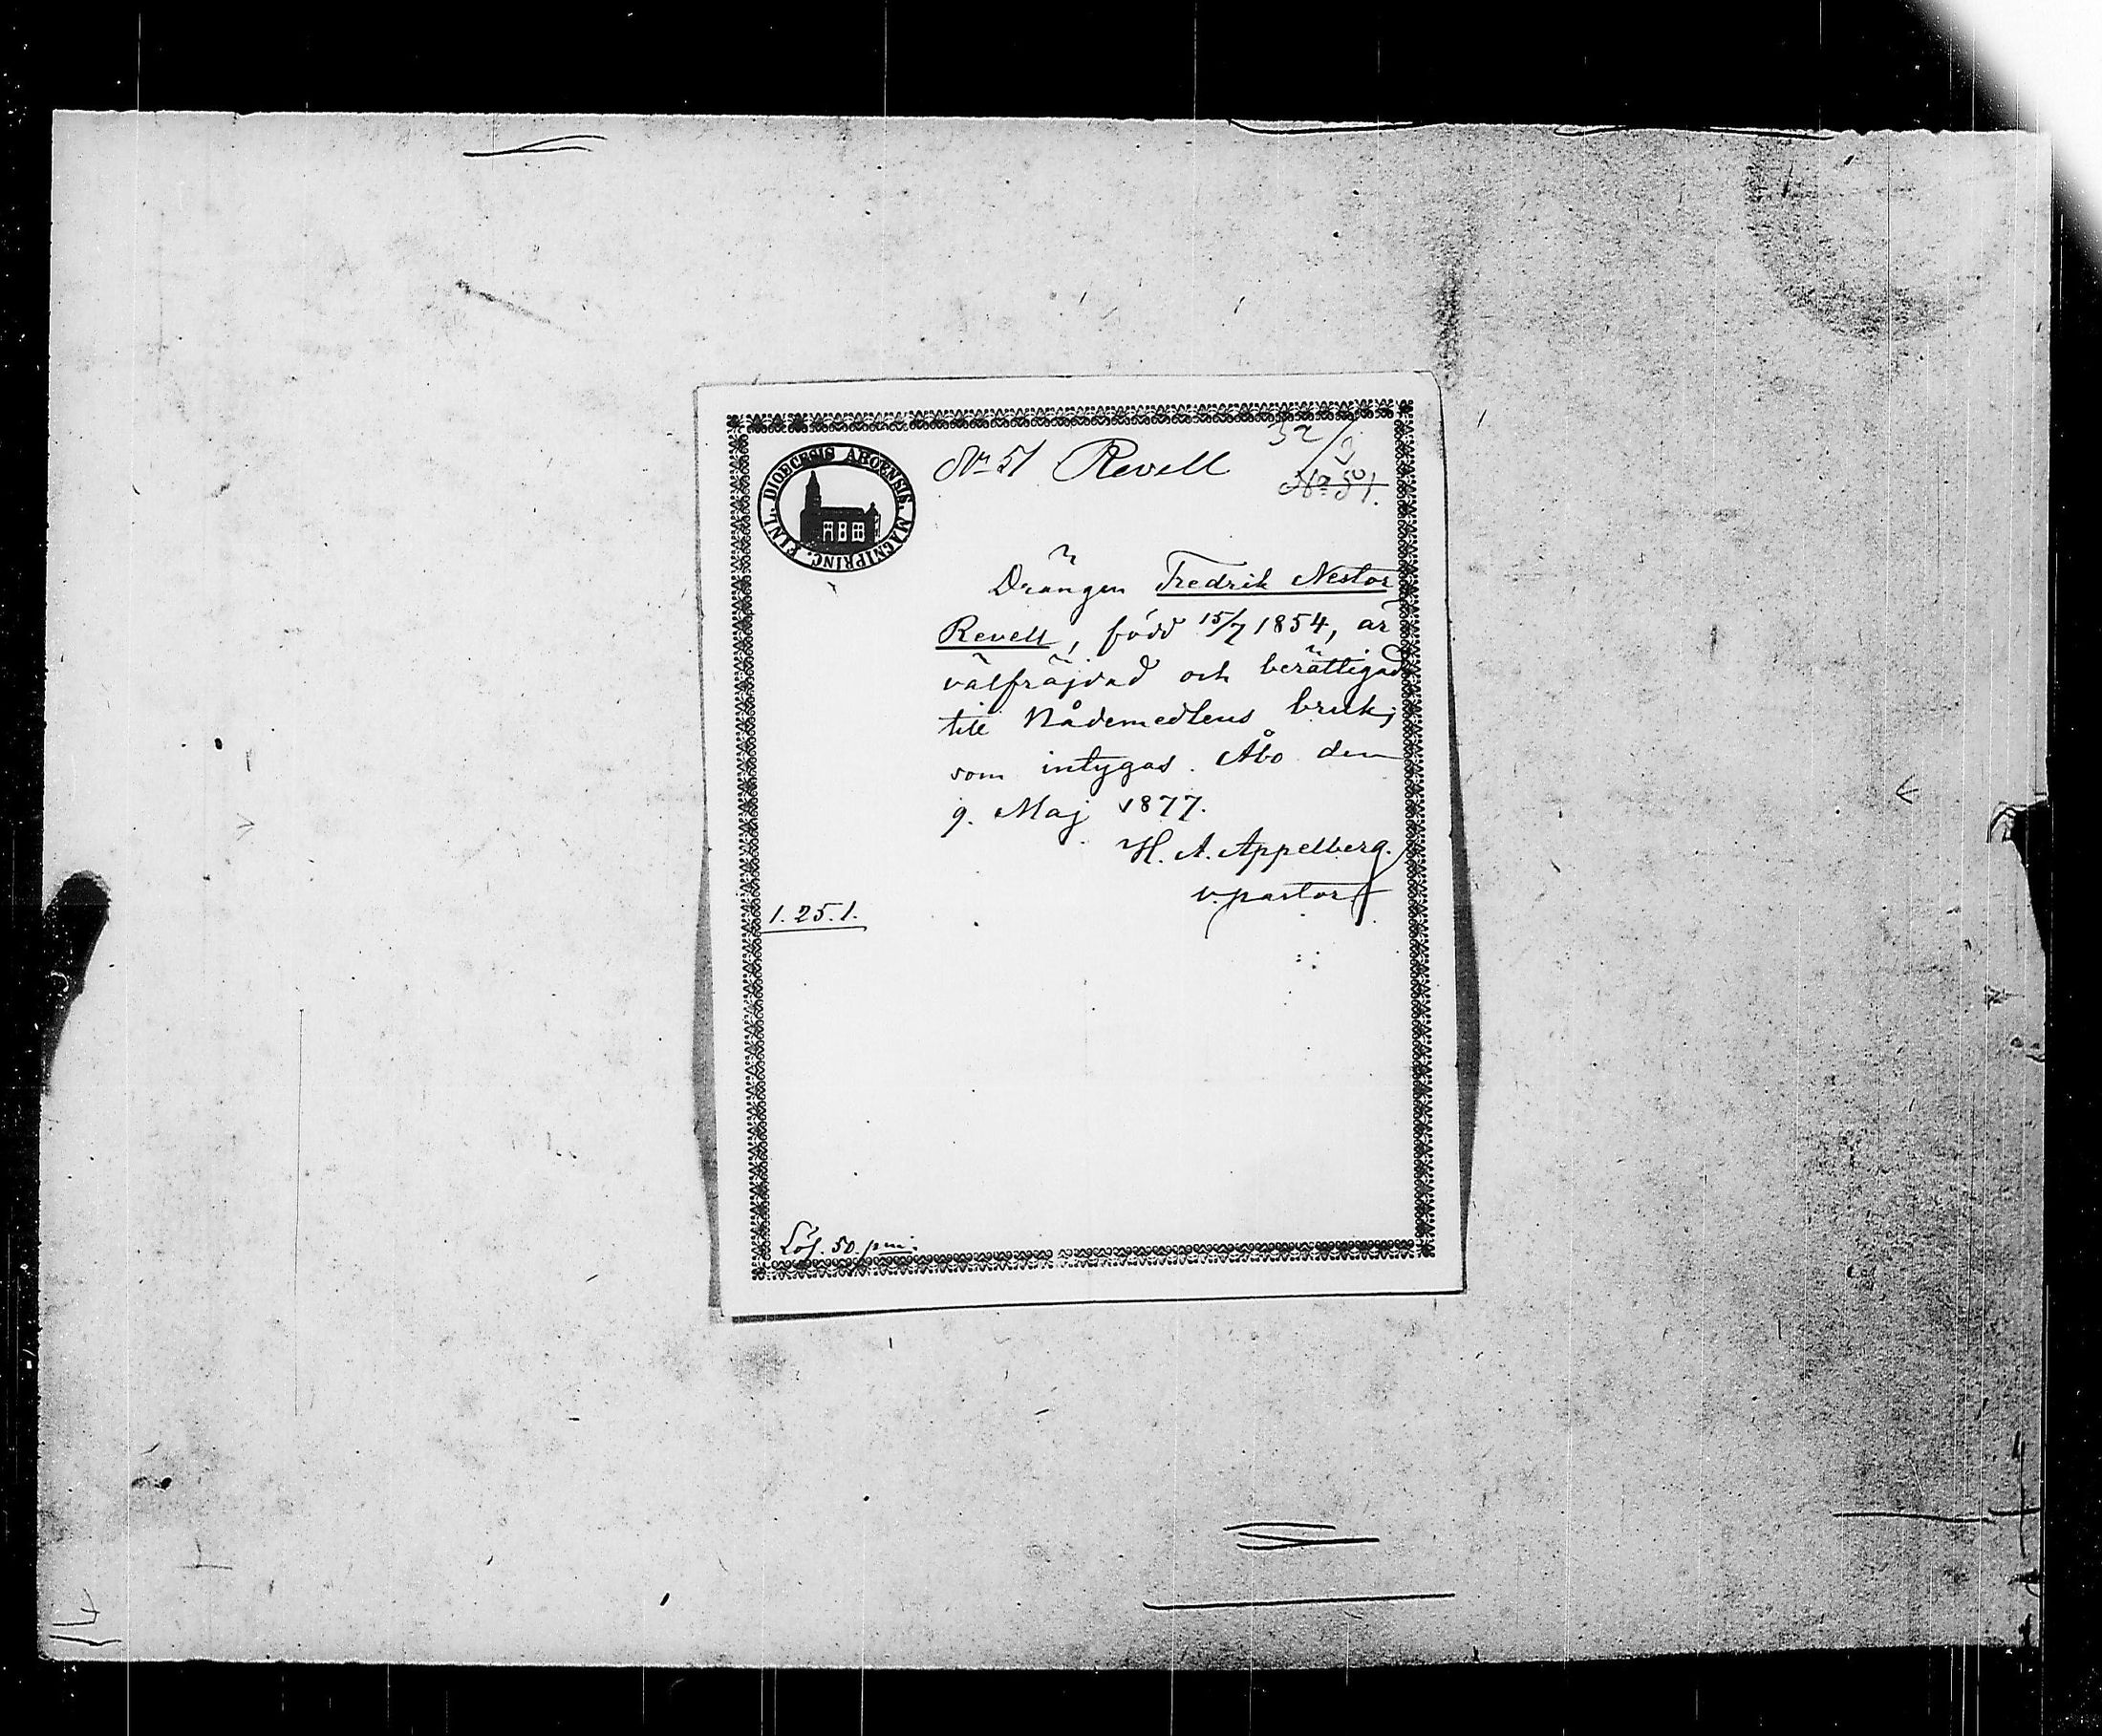 DIOECESIS ABOENSIS. MAGNIPRINC. FINL.
No 51 Revell
32/
No 51.
Drängen Fredrik Nestor
Revell, född 15/7 1854, är
välfräjdad och berättigad
till Nådemedlens bruk;
som intygas. Åbo den
9. Maj 1877.
H. A. Appelberg.
v. pastor
1. 25. 1.
Lös. 50. pni.